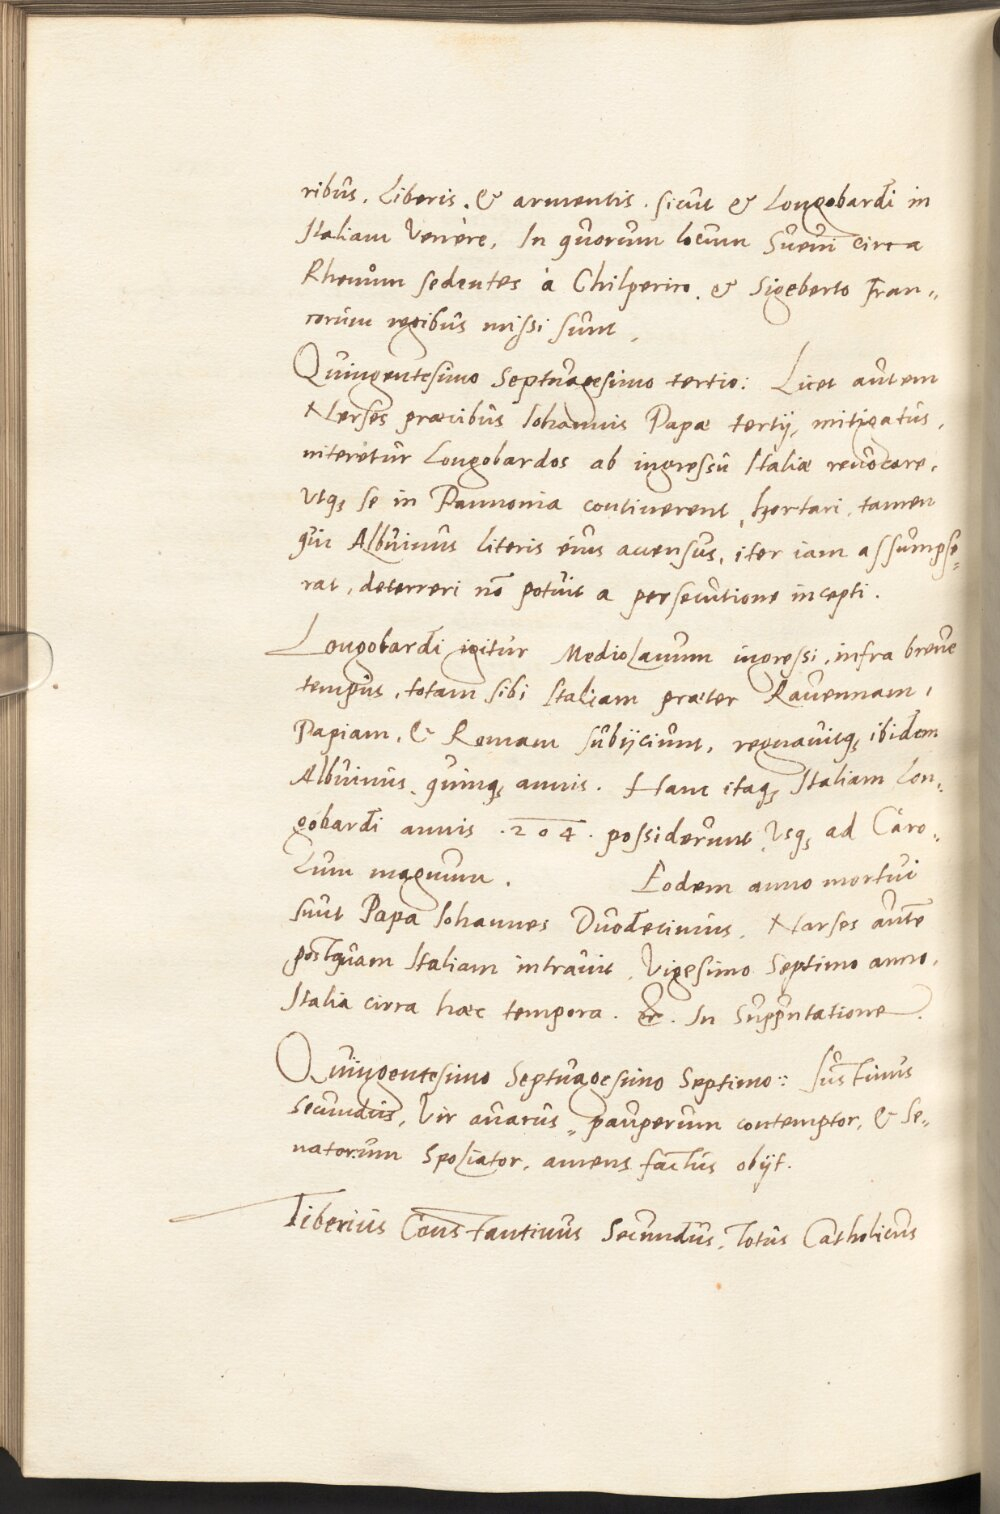 ribus. Liberis. & armentis. sicut & Longobardi in
Italiam Venère. In quorum locum Suevi circa
Rhenum sedentes à Chilperico. & Sigeberto Fran„
corum regibus missi sunt.
Quingentesimo Septuagesimo tertio: Licet autem
Narses præcibus Iohannis Papæ tertij, mitigatus,
niteretur Longobardos ab ingressu Italiæ revocare,
Utq; se in Pannonia continerent, hortari, tamen
qui Albuinus literis eius accensus, iter iam assumpse„
rat, deterreri nō potuit a persecutione incepti.
Longobardi igitur Mediolanum ingressi, infra breve
tempus, totam sibi Italiam præter Ravennam,
Papiam, & Romam subijciunt, regnavitq; ibidem
Albuinus quinq; annis. Hanc itaq; Italiam Lon„
gobardi annis .204. possiderunt Usq; ad Caro„
lum magnum. Eodem anno mortui
sunt Papa Iohannes Duodecimus. Narses autē
postquam Italiam intravit, Vigesimo Septimo anno,
Italia circa hæc tempora. &c. In Supputatione.
Quingentesimo Septuagesimo Septimo:: Iustinus
Secundus, Vir avarus„ pauperum contemptor, & Se„
natorum Spoliator, amens factus obijt.
Tiberius Constantinus Secundus, Totus Catholicus